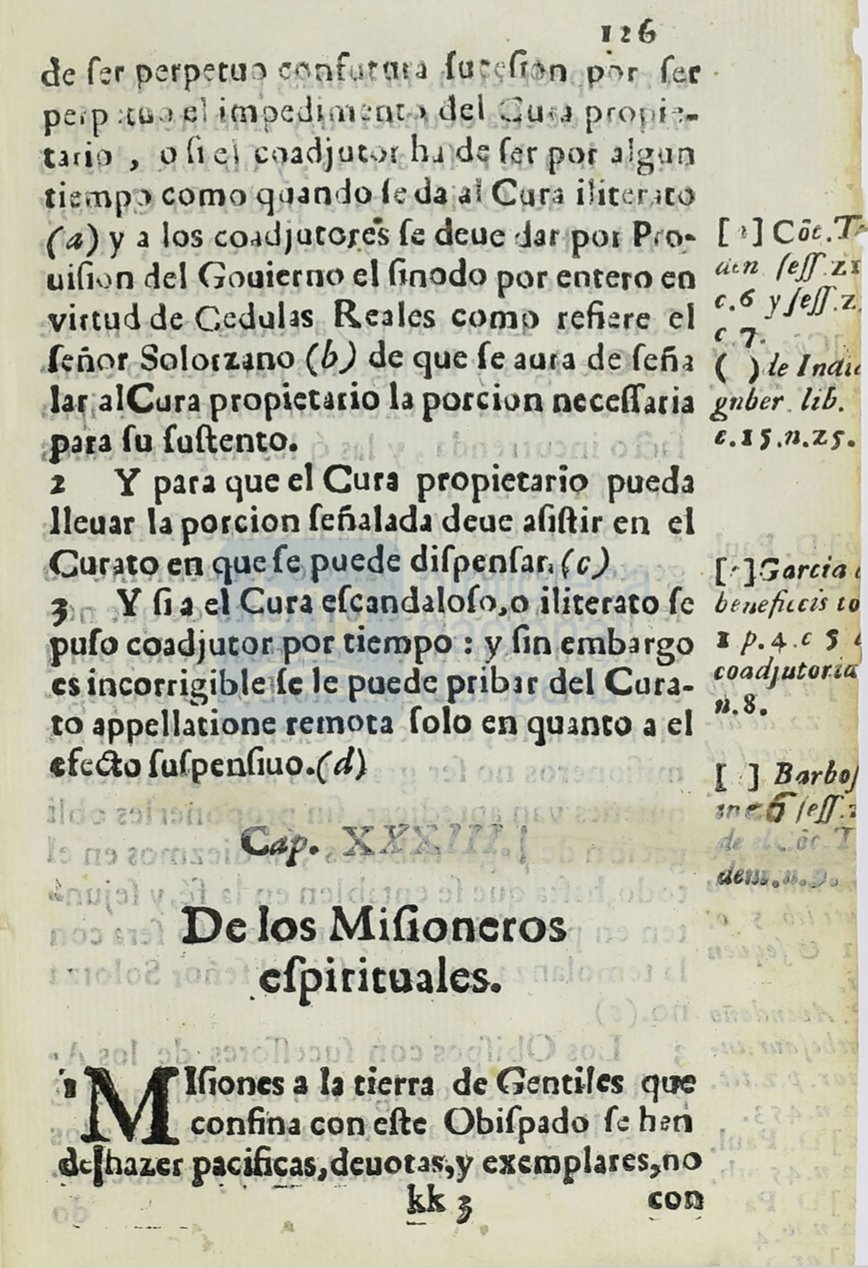 126
de ser perpetuo confutura sucesion por ser
perpetuo el impedimento del Cura propie-
tario , o si el coadjutor ha de ser por algun
tiempo como quando se da al Cura iliterato
(a) y a los coadjutores se deue dar por Pro-
uision del Gouierno el sinodo por entero en
virtud de Cedulas Reales como refiere el
señor Solorzano (b) de que se aura de seña
lar al Cura propietario la porcion necessaria
para su sustento.
2 Y para que el Cura propietario pueda
lleuar la porcion señalada deue asistir en el
Curato en que se puede dispensar. (c)
3 Y si a el Cura escandaloso, o iliterato se
puso coadjutor por tiempo : y sin embargo
es incorrigible se le puede pribar del Cura-
to appellatione remota solo en quanto a el
efecto suspensiuo. (d)
Cap. XXXIII.
De los Misioneros
espirituales.
1 MIsiones a la tierra de Gentiles que
confina con este Obispado se han
de hazer pacificas, deuotas, y exemplares, no
kk 3 con
[ ] Cōc. T
den sess. 21
c. 6 y sess. 2
c 7.
( ) de Indi
guber. lib.
c. 15. n. 25.
[ ] Garcia
beneficis to
1 p. 4. c 5
coadjutoria
n. 8.
[ ] Barbos
in c. 6 sess.
de el Cōc T
dem. n. 9.